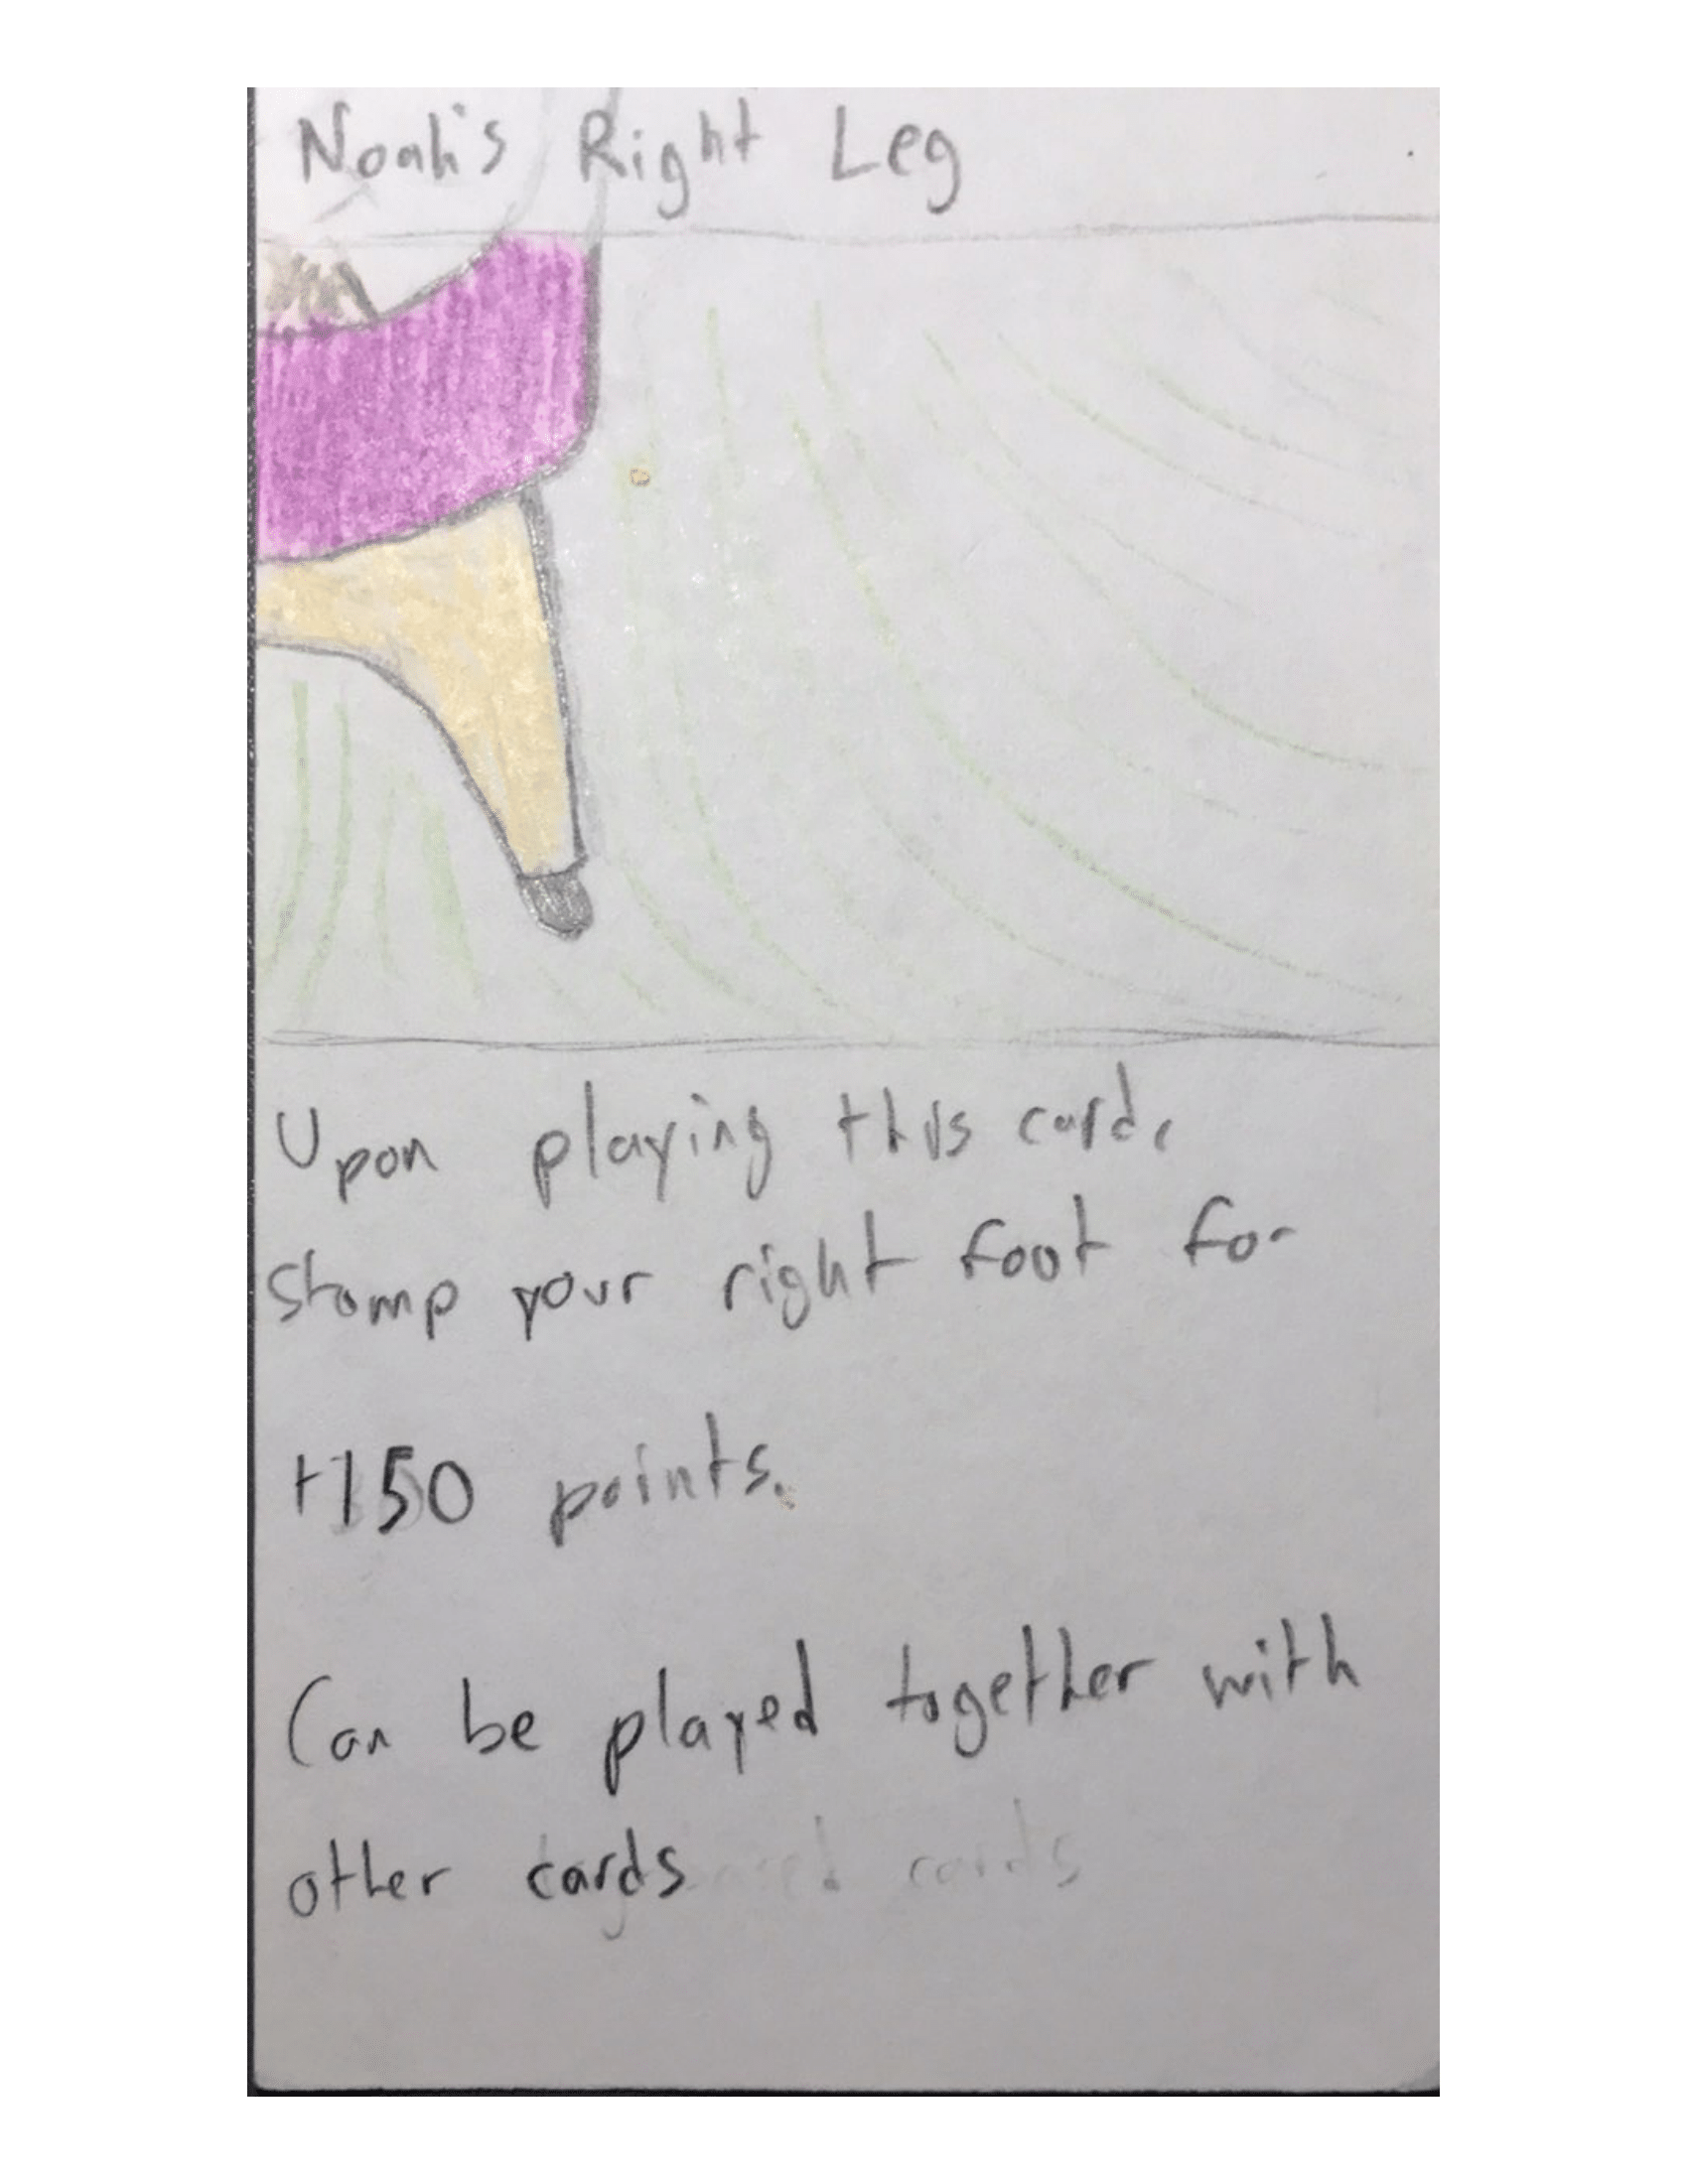 Noah's Right Leg
Upon playing this card,
stomp your right foot for
+150 points.
Can be played together with
other cards cards